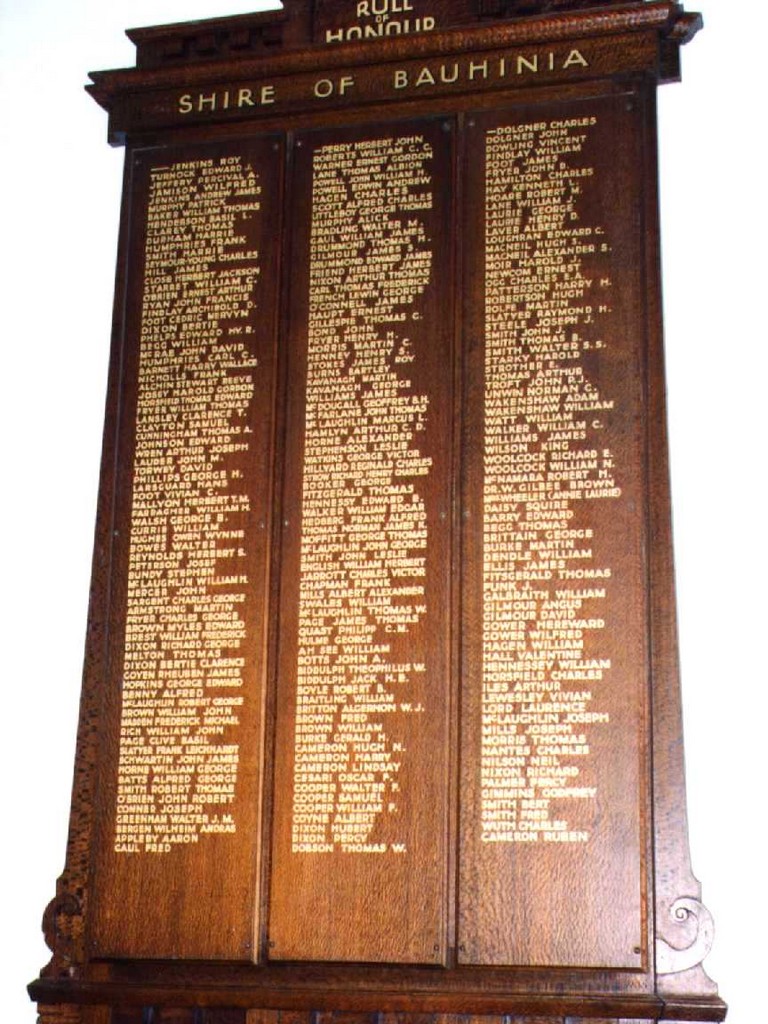 ROLL
OF
HONOUR
SHIRE OF BAUHINIA
—JENKINS ROY
TURNOCK EDWARD J.
JEFFERY PERCIVAL A.
WILSON WILFRED
JENKINS ANDREW JAMES
MURPHY PATRICK
BAKER WILLIAM THOMAS
HENDERSON BASIL L.
CAREY THOMAS
DURHAM HARRY
HUMPHRIES FRANK
SMITH HARRIE
DE-COUR-YOUNG CHARLES
HILL JAMES
CLOSE HERBERT JACKSON
STEWART WILLIAM C.
OBRIEN ERNEST ARTHUR
RYAN JOHN FRANCIS
FINDLAY ARCHIBALD D.
FOOT CEDRIC MERVYN
DIXON BERTIE
PHELPS EDWARD HY. R.
BEGG WILLIAM
McRAE JOHN DAVID
HUMPHRIES CARL C.
BARNETT HARRY WALLACE
NICHOLLS FRANK
ALCHIN STEWART REEVE
JOSEY HAROLD GORDON
HORSFIELD THOMAS EDWARD
FRYER WILLIAM THOMAS
LILLEY CLARENCE T.
CLAYTON SAMUEL
CUNNINGHAM THOMAS A.
JOHNSON EDWARD
WREN ARTHUR JOSEPH
LAURIE JOHN M.
TORWAY DAVID
PHILLIPS GEORGE H.
LARSGUARD HANS
ROOT VIVIAN C.
MALLYON HERBERT T.M.
GALLAGHER WILLIAM H.
WALSH GEORGE B.
CURRIE WILLIAM
HUGHES OWEN WYNNE
BOWES WALTER
REYNOLDS HERBERT S.
PETERSON JOSEF
BUNDY STEPHEN
McLAUGHLIN WILLIAM H.
MERCER JOHN
SARGENT CHARLES GEORGE
ARMSTRONG MARTIN
FRYER CHARLES GEORGE
BROWN MYLES EDWARD
BREST WILLIAM FREDERICK
DIXON RICHARD GEORGE
MELTON THOMAS
DIXON BERTIE CLARENCE
GOYEN RHEUBEN JAMES
HOPKINS GEORGE EDWARD
BENNY ALFRED
McLAUGHLIN ROBERT GEORGE
BROWN WILLIAM JOHN
WARREN FREDERICK MICHAEL
RICH WILLIAM JOHN
PAGE CLIVE BASIL
SLATYER FRANK LEICHHARDT
SCHWARTIN JOHN JAMES
HORNE WILLIAM GEORGE
BATTS ALFRED GEORGE
SMITH ROBERT THOMAS
O'BRIEN JOHN ROBERT
CONNER JOSEPH
GREENHAM WALTER J. M.
BERGEN WILHEIM ANDRAS
APPLEBY AARON
GAUL FRED
—PERRY HERBERT JOHN
ROBERTS WILLIAM C. C.
WARNER ERNEST GORDON
LANE THOMAS ALBION
POWELL JOHN WILLIAM H.
POWELL EDWIN ANDREW
HAGEN CHARLES
SCOTT ALFRED CHARLES
LITTLEBOY GEORGE THOMAS
MURPHY ALICK
BRADLING WALTER M.
GAUL WILLIAM JAMES
DRUMMOND THOMAS H.
GILMOUR JAMES S.
DRUMMOND EDWARD JAMES
FRIEND HERBERT JAMES
NIXON ARTHUR THOMAS
CARL THOMAS FREDERICK
FRENCH LEWIN GEORGE
O'CONNELL JAMES
HAUPT ERNEST
GILLESPIE THOMAS C.
BOND JOHN
FRYER HENRY H.
MORRIS MARTIN C.
HENNEY HENRY S.
STOKES JAMES ROY
BURNS BARTLEY
KAVANAGH MARTIN
KAVANAGH GEORGE
WILLIAMS JAMES
McDOUGALL GEOFFREY B.H.
McFARLANE JOHN THOMAS
McLAUGHLIN MARCUS L.
HAMLYN ARTHUR C. D.
HORNE ALEXANDER
STEPHENSON LESLIE
WATKINS GEORGE VICTOR
HILLYARD REGINALD CHARLES
STROW RICHARD HENRY CHARLES
ROOKER GEORGE
FITZGERALD THOMAS
HENNESSY EDWARD B.
WALKER WILLIAM EDGAR
HEDBERG FRANK ALFRED
THOMAS NORMAN JAMES K.
MOFFITT GEORGE THOMAS
McLAUGHLIN JOHN GEORGE
SMITH JOHN LESLIE
ENGLISH WILLIAM HERBERT
JARROTT CHARLES VICTOR
CHAPMAN FRANK
MILLS ALBERT ALEXANDER
SWALES WILLIAM
McLAUGHLIN THOMAS W.
PAGE JAMES THOMAS
QUAST PHILIPP C.M.
HULME GEORGE
AH SEE WILLIAM
BOTTS JOHN A.
BIDDULPH THEOPHILUS W.
BIDDULPH JACK H. B.
BOYLE ROBERT B.
BRAITLING WILLIAM
BRITTON ALGERNON W. J.
BROWN FRED
BROWN WILLIAM
BURKE GERALD H.
CAMERON HUGH N.
CAMERON HARRY
CAMERON LINDSAY
CESARI OSCAR P.
COOPER WALTER F.
COOPER SAMUEL
COOPER WILLIAM F.
COYNE ALBERT
DIXON HUBERT
DIXON PERCY
DOBSON THOMAS W.
—DOLGNER CHARLES
DOLGNER JOHN
DOWLING VINCENT
FINDLAY WILLIAM
FOOT JAMES
FRYER JOHN B.
HAMILTON CHARLES
HAY KENNETH L.
HOARE ROBERT M.
LEE WILLIAM J.
LAURIE GEORGE
LAURIE HENRY D.
LAVER ALBERT
LOUGHRAN EDWARD C.
MACNEIL HUGH S.
MACNEIL ALEXANDER S.
MOIR HAROLD J.
NEWCOM ERNEST
OGG CHARLES E.A.
PATTERSON HARRY H.
ROBERTSON HUGH
ROLFE MARTIN
SLATYER RAYMOND H.
STEELE JOSEPH J.
SMITH JOHN J.
SMITH THOMAS B.
SMITH WALTER S. S.
STARKY HAROLD
STROTHER E.
THOMAS ARTHUR
TROFT JOHN R.J.
UNWIN NORMAN C.
WAKENSHAW ADAM
WAKENSHAW WILLIAM
WATT WILLIAM
WALKER WILLIAM C.
WILLIAMS JAMES
WILSON KING
WOOLCOCK RICHARD E.
WOOLCOCK WILLIAM N.
McNAMARA ROBERT H.
DR.W. GILBEE BROWN
MRS WHEELER (ANNIE LAURIE)
DAISY SQUIRE
BARRY EDWARD
BEGG THOMAS
BRITTAIN GEORGE
BURKE MARTIN
DENDLE WILLIAM
ELLIS JAMES
FITZGERALD THOMAS
FUNK A.
GALBRAITH WILLIAM
GILMOUR ANGUS
GILMOUR DAVID
GOWER HEREWARD
GOWER WILFRED
HAGEN WILLIAM
HALL VALENTINE
HENNESSEY WILLIAM
HORSFIELD CHARLES
ILES ARTHUR
LEWESLEY VIVIAN
LORD LAURENCE
McLAUGHLIN JOSEPH
MILLS JOSEPH
MORRIS THOMAS
NANTES CHARLES
NILSON NEIL
NIXON RICHARD
PALMER PERCY
SIMMINS GODFREY
SMITH BERT
SMITH FRED
WUTH CHARLES
CAMERON RUBEN